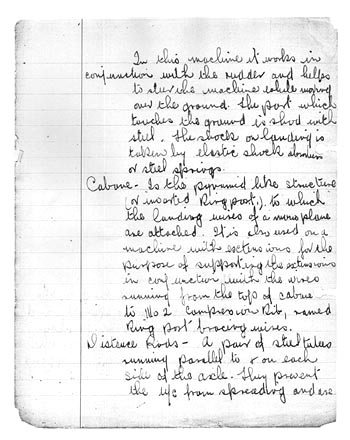 In this machine it works in
conjunction with the rudder and helps
to steer the machine while moving
over the ground. The part which
touches the ground is shod with
steel. The shock on landing is
taken by elastic shock absorbers
or steel springs.
Cabane - Is the pyramid like structure
(or inverted King post,) to which
the landing wires of a monoplane
are attached. It is also used on a
machine with extensions for the
purpose of supporting the extensions
in conjunction with the wires
running from the top of cabane
to No 2 Compression Rib, named
King post bracing wires.
Distence Rods - A pair of steel tubes
running parallel to & on each
side of the axle. They prevent
the u/c from spreading and are